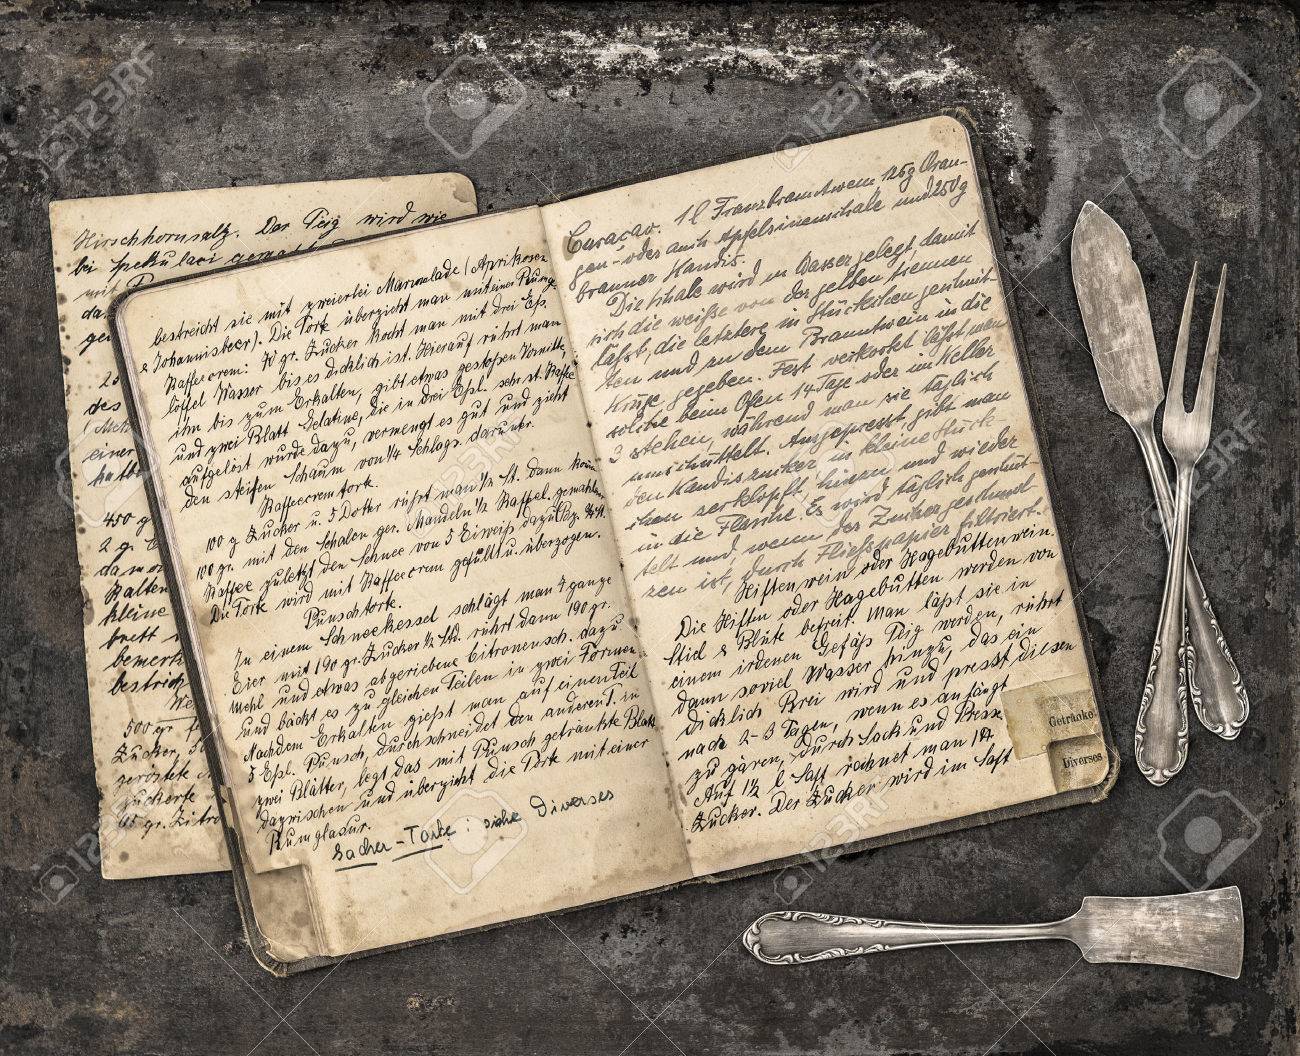 Hirschhornsalz. Der Teig wird wie
bei Spekulaci gemacht
mit
da
gen
des
einer
450 g
2 g.
dann
kalten
kleine
brett
bemerk
bestrich
500 gr.
Zucker, 50
geröstete
Zucker
65 gr. Zitro
bestreicht sie mit zweierlei Marmelade (Aprikosen
& Johannisbeer). Die Torte überzieht man mit einer Punsch
Kaffeecrem: 70 gr. Zucker kocht man mit drei Eßl.
löffel Wasser bis es dicklich ist. Hierauf rührt man
ihn bis zum Erkalten, gibt etwas gestoßen Vanille,
und zwei Blatt Gelatine, die in drei Eßl. sehr st. Kaffee
aufgelöst wurde dazu, vermengt es gut und zieht
den steifen Schaum von 1/4 Schlags. darunter.
Kaffeecremtorte.
100 g Zucker u. 5 Dotter rührt man 1/2 St. dann
100 gr. mit den Schalen ger. Mandeln 1/2 Kaffel. gemahlen
Kaffee zuletzt den Schnee von 5 Eiweiß dazu
Die Torte wird mit Kaffeecrem gefüllt u. überzogen.
Punschtorte.
In einem Schneekessel schlägt man 7 ganze
Eier mit 190 gr. Zucker 1/2 Std. rührt dann 190 gr.
Mehl und etwas abgeriebene Citronensch. dazu
und bäckt es zu gleichen Teilen in zwei Formen.
Nachdem Erkalten gießt man auf einen Teil
5 Eßl. Punsch, durchschneidet den anderen T. in
zwei Blätter, legt das mit Punsch getränkte Blatt
dazwischen und überzieht die Torte mit einer
Rumglasur.
Sacher-Torte: siehe Diverses
Curacao. 1 l Franzbranntwein, 125 g Oran-
gen- oder auch Apfelsinenschale und 250 g
brauner Kandis.
Die Schale wird in Wasser gelegt, damit
sich die weiße von der gelben trennen
läßt, die letztere in Stückchen geschnit-
ten und zu dem Branntwein in die
Kruke gegeben. Fest verkorkt läßt man
solche beim Ofen 14 Tage oder im Keller
3 stehen, während man sie täglich
umschüttelt. Ausgepresst, gibt man
den Kandiszucker in kleine Stück-
chen zerklopft hinein und wieder
in die Flasche. Es wird täglich geschüt-
telt und, wenn der Zucker geschmol-
zen ist, durch Fließpapier filtriert.
Hiftenwein oder Hagebuttenwein.
Die Hiften oder Hagebutten werden von
Stiel & Blüte befreit. Man läßt sie in
einem irdenen Gefäß Teig werden, rührt
dann soviel Wasser hinzu, das ein
dicklich Brei wird und presst diesen
nach 2-3 Tagen, wenn es anfängt
zu gären, durch Sack und Presse.
Auf 1 1/2 l Saft rechnet man 1 th
Zucker. Der Zucker wird im Saft
Getränke.
Diverses
123RF